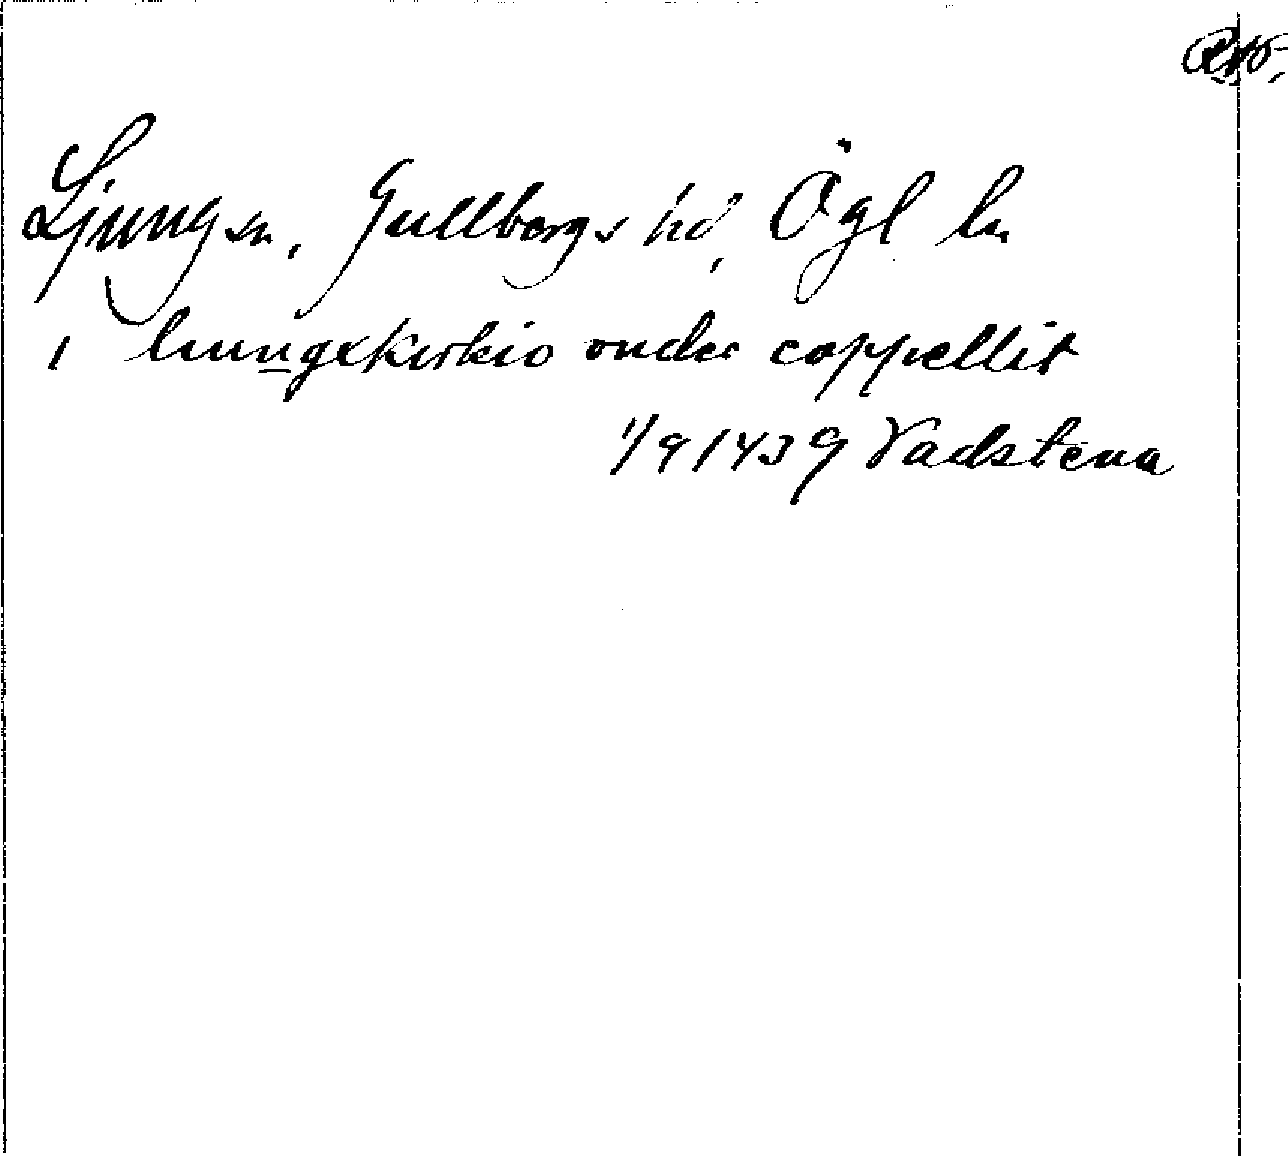 Ljung sn, Gullbergs hd, Ögl ln
i liungxkirkio onder coppellit
1/9 1439 Vadstena